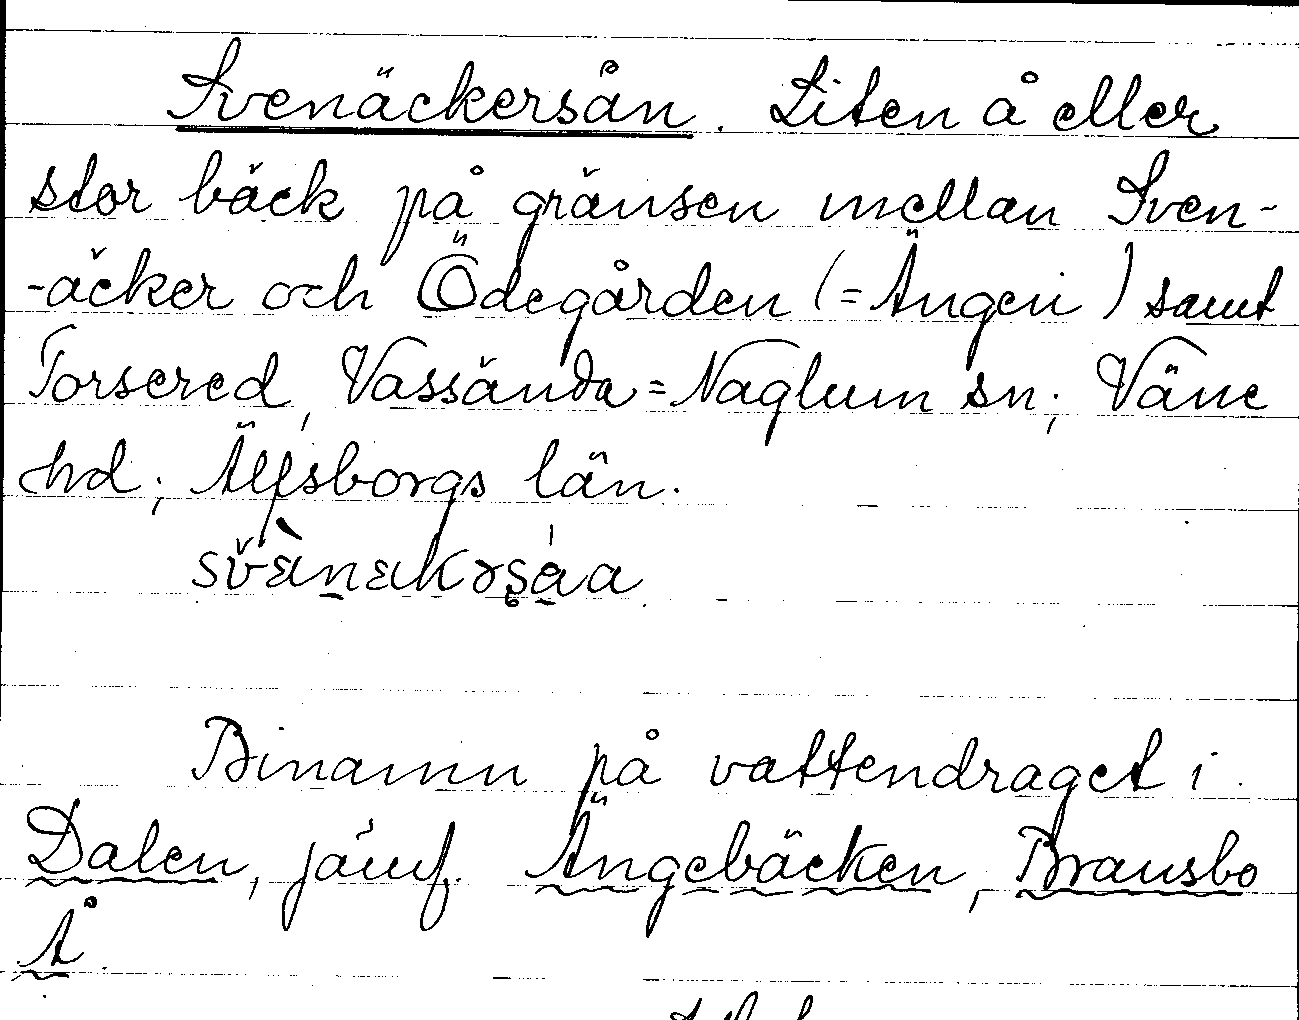 Svenäckersån. Liten å eller
stor bäck på gränsen mellan Sven-
-äcker och Ödegården (=Ängen) samt
Torsered, Vassända=Naglum sn; Väne
hd; Älfsborgs län.
Binamn på vattendraget i
Dalen, jämf. Ängebäcken, Bransbo
Å.